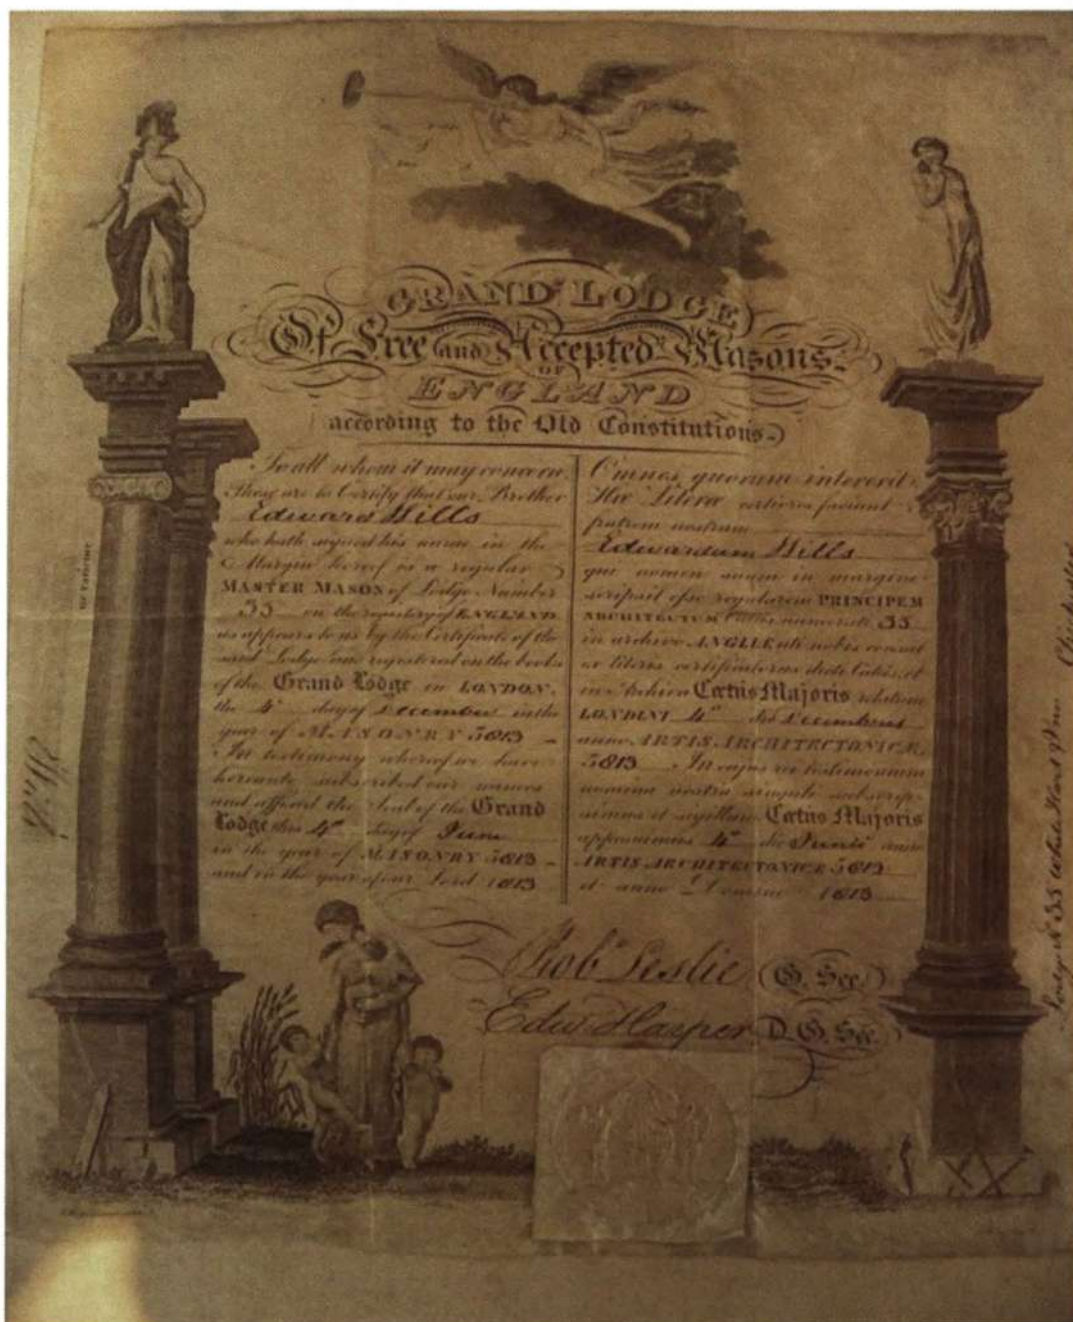 GRAND LODGE
Of Free and Accepted Masons
OF
ENGLAND
according to the Old Constitutions.
To all whom it may concern
These are to Certify that our Brother
Edward Wills
who hath signed his name in the
Margin hereof is a regular
MASTER MASON of Lodge Number
35 on the registry of ENGLAND
as appears to us by the Certificate of the
said Lodge registered on the books
of the Grand Lodge in LONDON.
the 4th day of December in the
year of MASONRY 5813
In testimony whereof we have
hereunto subscribed our names
and affixed the Seal of the Grand
Lodge this 4th day of June
in the year of MASONRY 5813
and in the year of our Lord 1813
Omnes quorum intererit
Hæ Literæ certiores faciant
fratrem nostrum
Edwardum Wills
qui nomen suum in margine
scripsit esse regularem PRINCIPEM
ARCHITECTUM numerati 35
in archivo ANGLIÆ uti nobis
literis certificatoriis dicti Cætus, et
in Archivo Cœtus Majoris
LONDINI 4 die Decembris
anno ARTIS ARCHITECTONICÆ
5813 In cujus rei testimonium
nomina nostra singuli subscrip-
simus et sigillum Cœtus Majoris
apposuimus 4 die Junii anno
ARTIS ARCHITECTONICÆ 5813
et anno Domini 1813
Robt Leslie G. Sec
Edwd Harper D. G. Sec.
Lodge No 35 White Hart Chichester